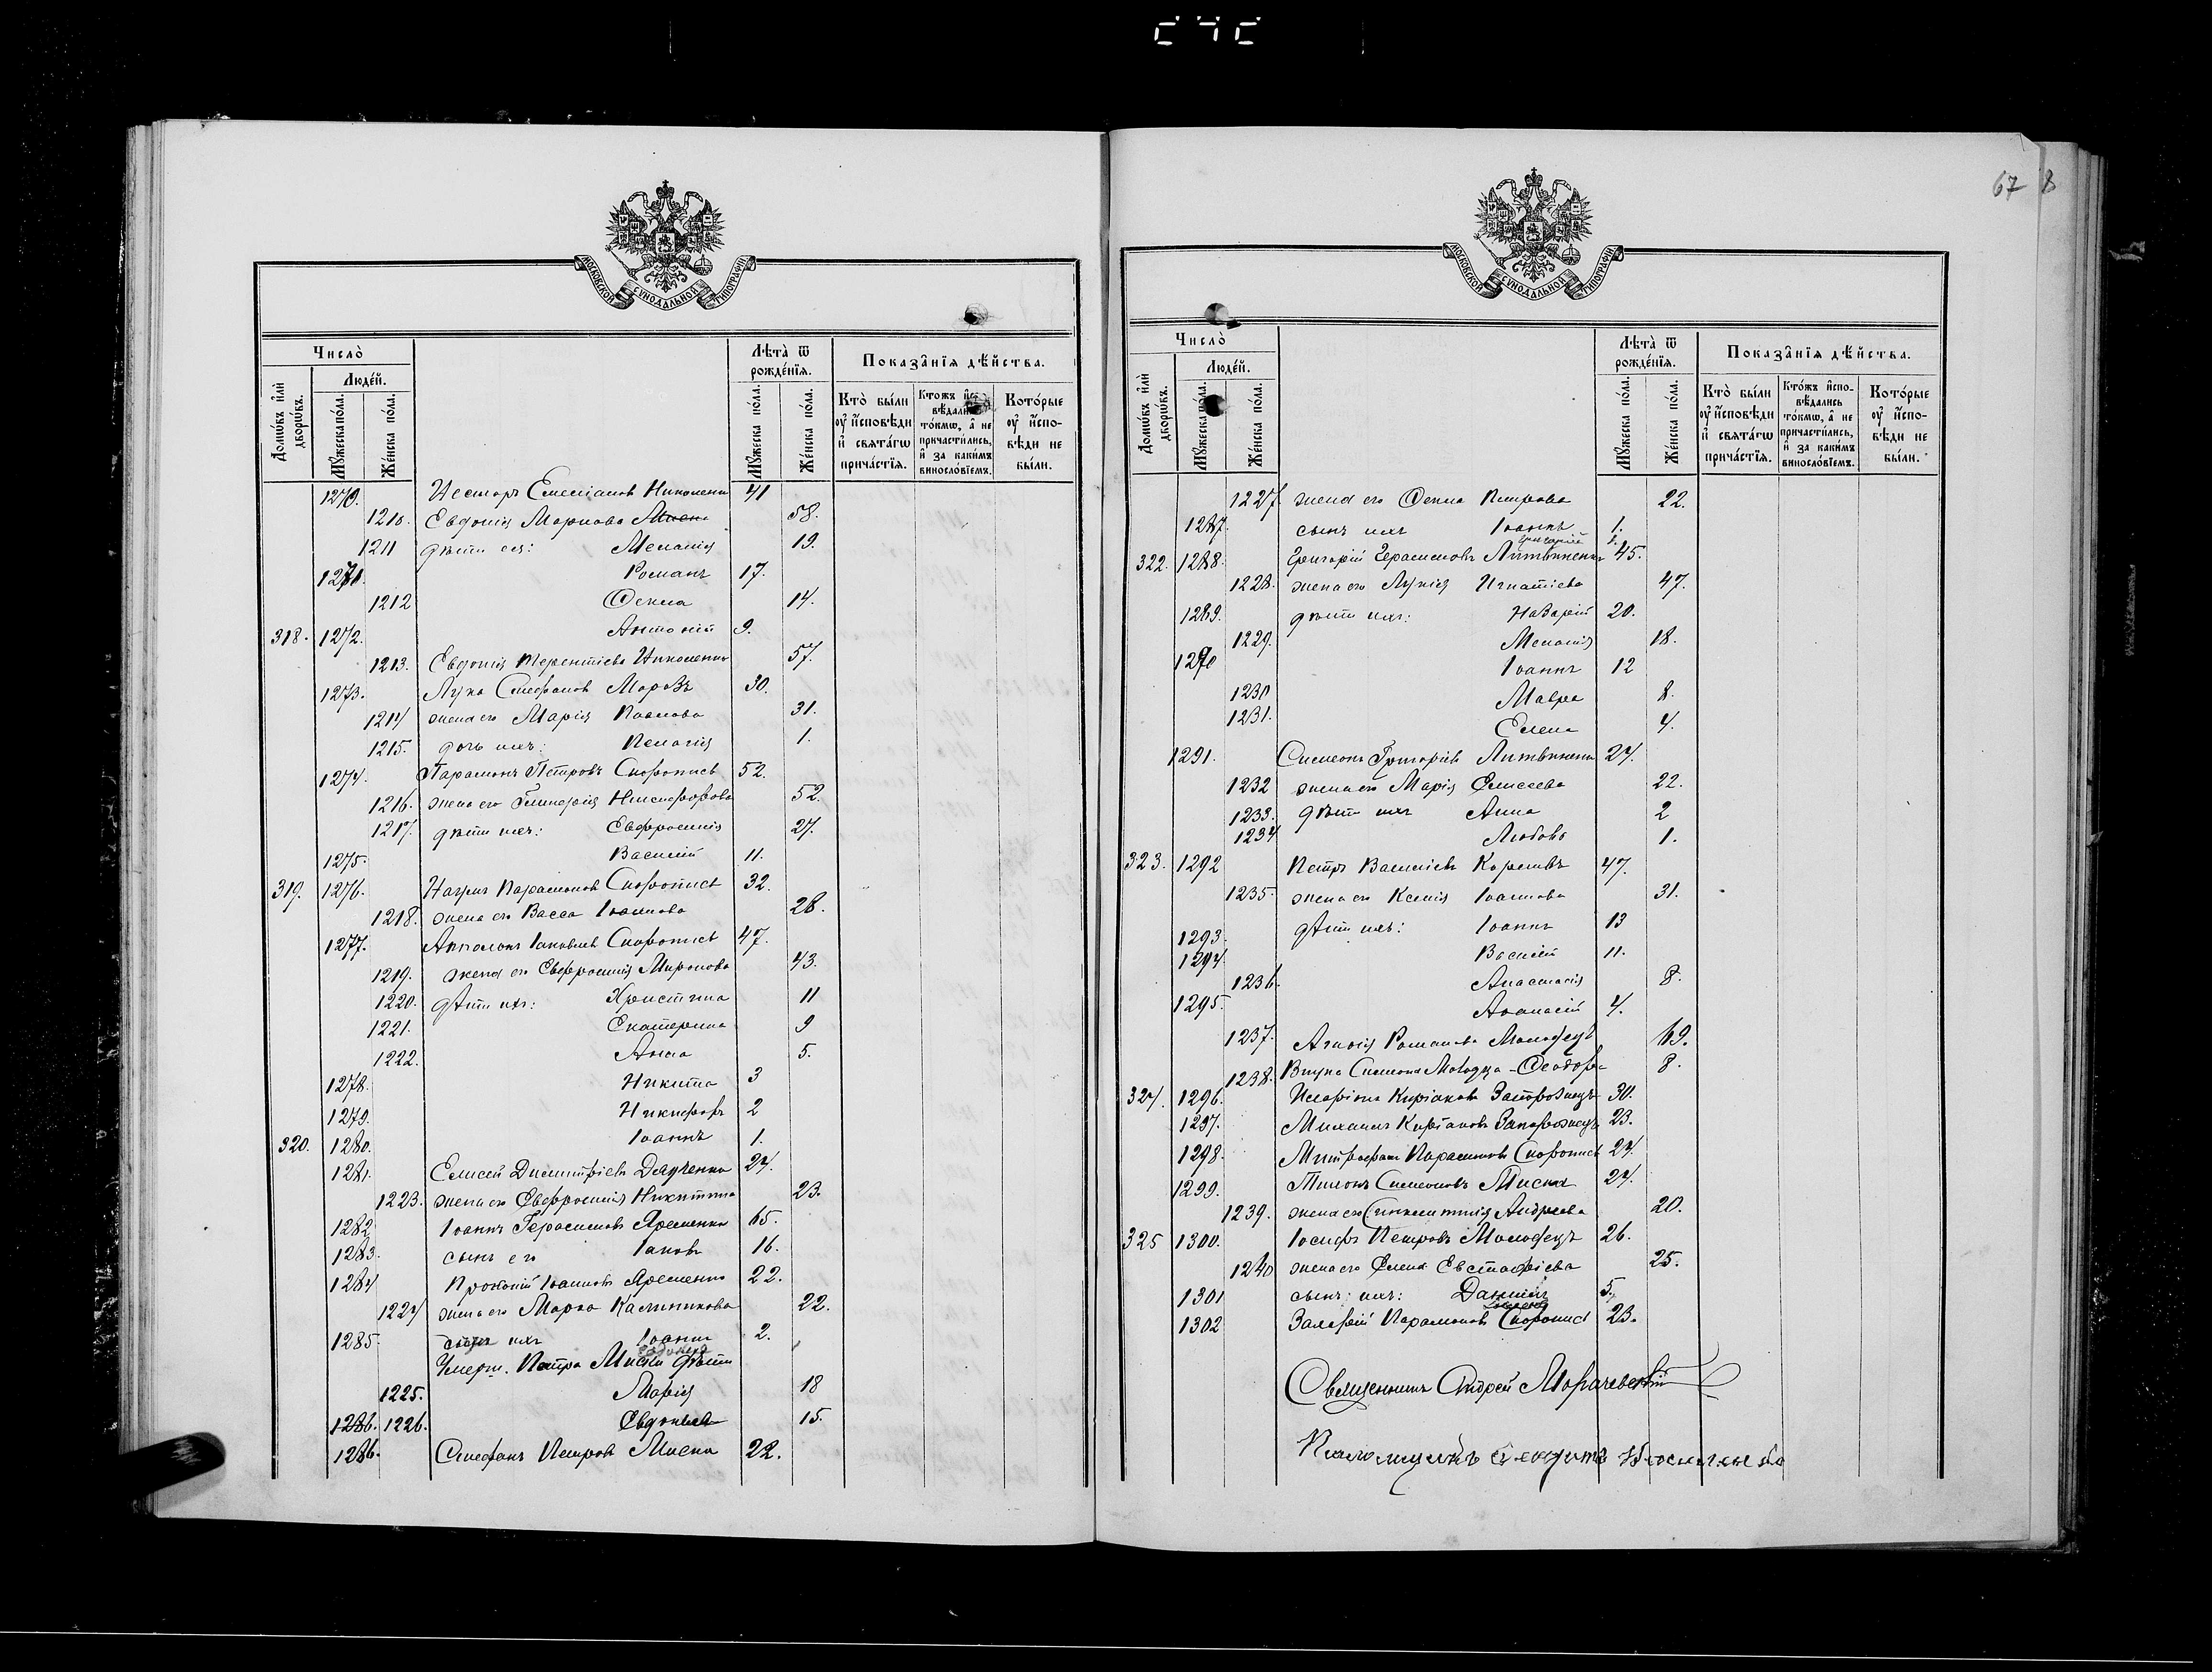 67 8
МОСКОВСКОЙ СѴНОДАЛЬНОЙ ТИПОГРАФІИ
Число̀
Домѡ́въ и҆лѝ дворѡ́въ.
Люде́й.
Мꙋ́жеска по́ла.
Же́нска по́ла.
Лѣ́та ѿ рожде́нїѧ.
Мꙋ́жеска по́ла.
Же́нска по́ла.
Показа̑нїѧ дѣ́йства.
Кто̀ бы́ли ᲂу҆ и҆́сповѣди и҆ свѧта́гѡ прича́стїѧ.
Кто́жъ и҆спо­вѣ́дались то́кмѡ, а҆ не причасти́лись, и҆ за каки́мъ винослѡ́вїемъ.
Кото́рые ᲂу҆ и҆́спо­вѣди не бы́ли.
1270. Несторъ Емеліановъ Николенко 41
1210. Евдокія Маркова 58.
1211 дѣти ея: Меланія 19.
1271. Романъ 17.
1212 Ѳекла 14.
318. 1272. Антоній 9.
1213. Евдокія Терентіева Николенко 57.
1273. Лука Стефановъ Морозъ 30.
1214 жена его Марія Павлова 31.
1215. дочь ихъ: Пелагія 1.
1274. Парамонъ Петровъ Скоропись 52.
1216. жена его Гликерія Никифорова 52.
1217. дѣти ихъ: Евфросинія 27.
1275. Василій 11.
319. 1276. Наумъ Парамоновъ Скоропись 32.
1218. жена его Васса Іоаннова 28.
1277. Іаковлевъ Скоропись 47.
1219. жена его Евфросинія Миронова 43.
1220. дѣти ихъ: Христина 11
1221. Екатерина 9
1222. Анна 5.
1278. Никита 3
1279. Никифоръ 2
320. 1280. Іоаннъ 1.
1281. Елисей Димитріевъ Дяученко 24.
1223. жена его Евфросинія Никитина 23.
1282 Іоаннъ Герасимовъ Яременко 65.
1283. сынъ его Іаковъ 16.
1284 Прокопій Іоанновъ Яременко 22.
1224 жена его Марѳа Калиникова 22.
1285. сынъ ихъ Іоаннъ 2.
Умерш. Петра Миски дѣти
1225. Марія 18
1286. 1226. Евдокія 15.
1286. Стефанъ Петровъ Миска 22.
Число̀
Домѡ́въ и҆лѝ дворѡ́въ.
Люде́й.
Мꙋ́жеска по́ла.
Же́нска по́ла.
Лѣ́та ѿ рожде́нїѧ.
Мꙋ́жеска по́ла.
Же́нска по́ла.
Показа̑нїѧ дѣ́йства.
Кто̀ бы́ли ᲂу҆ и҆́сповѣди и҆ свѧта́гѡ прича́стїѧ.
Кто́жъ и҆спо­вѣ́дались то́кмѡ, а҆ не причасти́лись, и҆ за каки́мъ винослѡ́вїемъ.
Кото́рые ᲂу҆ и҆́спо­вѣди не бы́ли.
1227. жена его Ѳекла Петрова 22.
1287. сынъ ихъ Іоаннъ 1.
Григорій 1.
322. 1288. Григорій Герасимовъ Литвиненко 45.
1228. жена его Лукія Игнатіева 47.
1289. дѣти ихъ: Назарій 20.
1229. Меланія 18.
1290 Іоаннъ 12
1230 Мавра 8.
1231. Елена 4.
1291. Симеонъ Григоріевъ Литвиненко 24.
1232 жена его Марія Елисеева 22.
1233. дѣти ихъ Анна 2
1234 Любовь 1.
323. 1292 Петръ Василіевъ 47.
1235. жена его Ксенія Іоаннова 31.
1293. дѣти ихъ: Іоаннъ 13
1294. Василій 11.
1236. Анастасія 8.
1295. Аѳанасій 4.
1237. Агаѳія Романова Молодецъ 69.
1238. Внука Симеона Молодца - Ѳеодора 8.
324. 1296. Иларіонъ Киріаковъ Запорожецъ 30.
1297. Михаилъ Киріаковъ Запорожецъ 23.
1298. Митрофанъ Парамоновъ Скоропись 24.
1299. Симеоновъ Миска 24.
1239. жена его Синклитикія Андреева 20.
325 1300. Іосифъ Петровъ Молодецъ 26.
1240 жена его Елена Евстафіева 25.
1301 сынъ ихъ: Даніилъ 5.
1302 Парамоновъ Скоропись 23.
Священникъ Андрей Морачевскій
Псаломщикъ